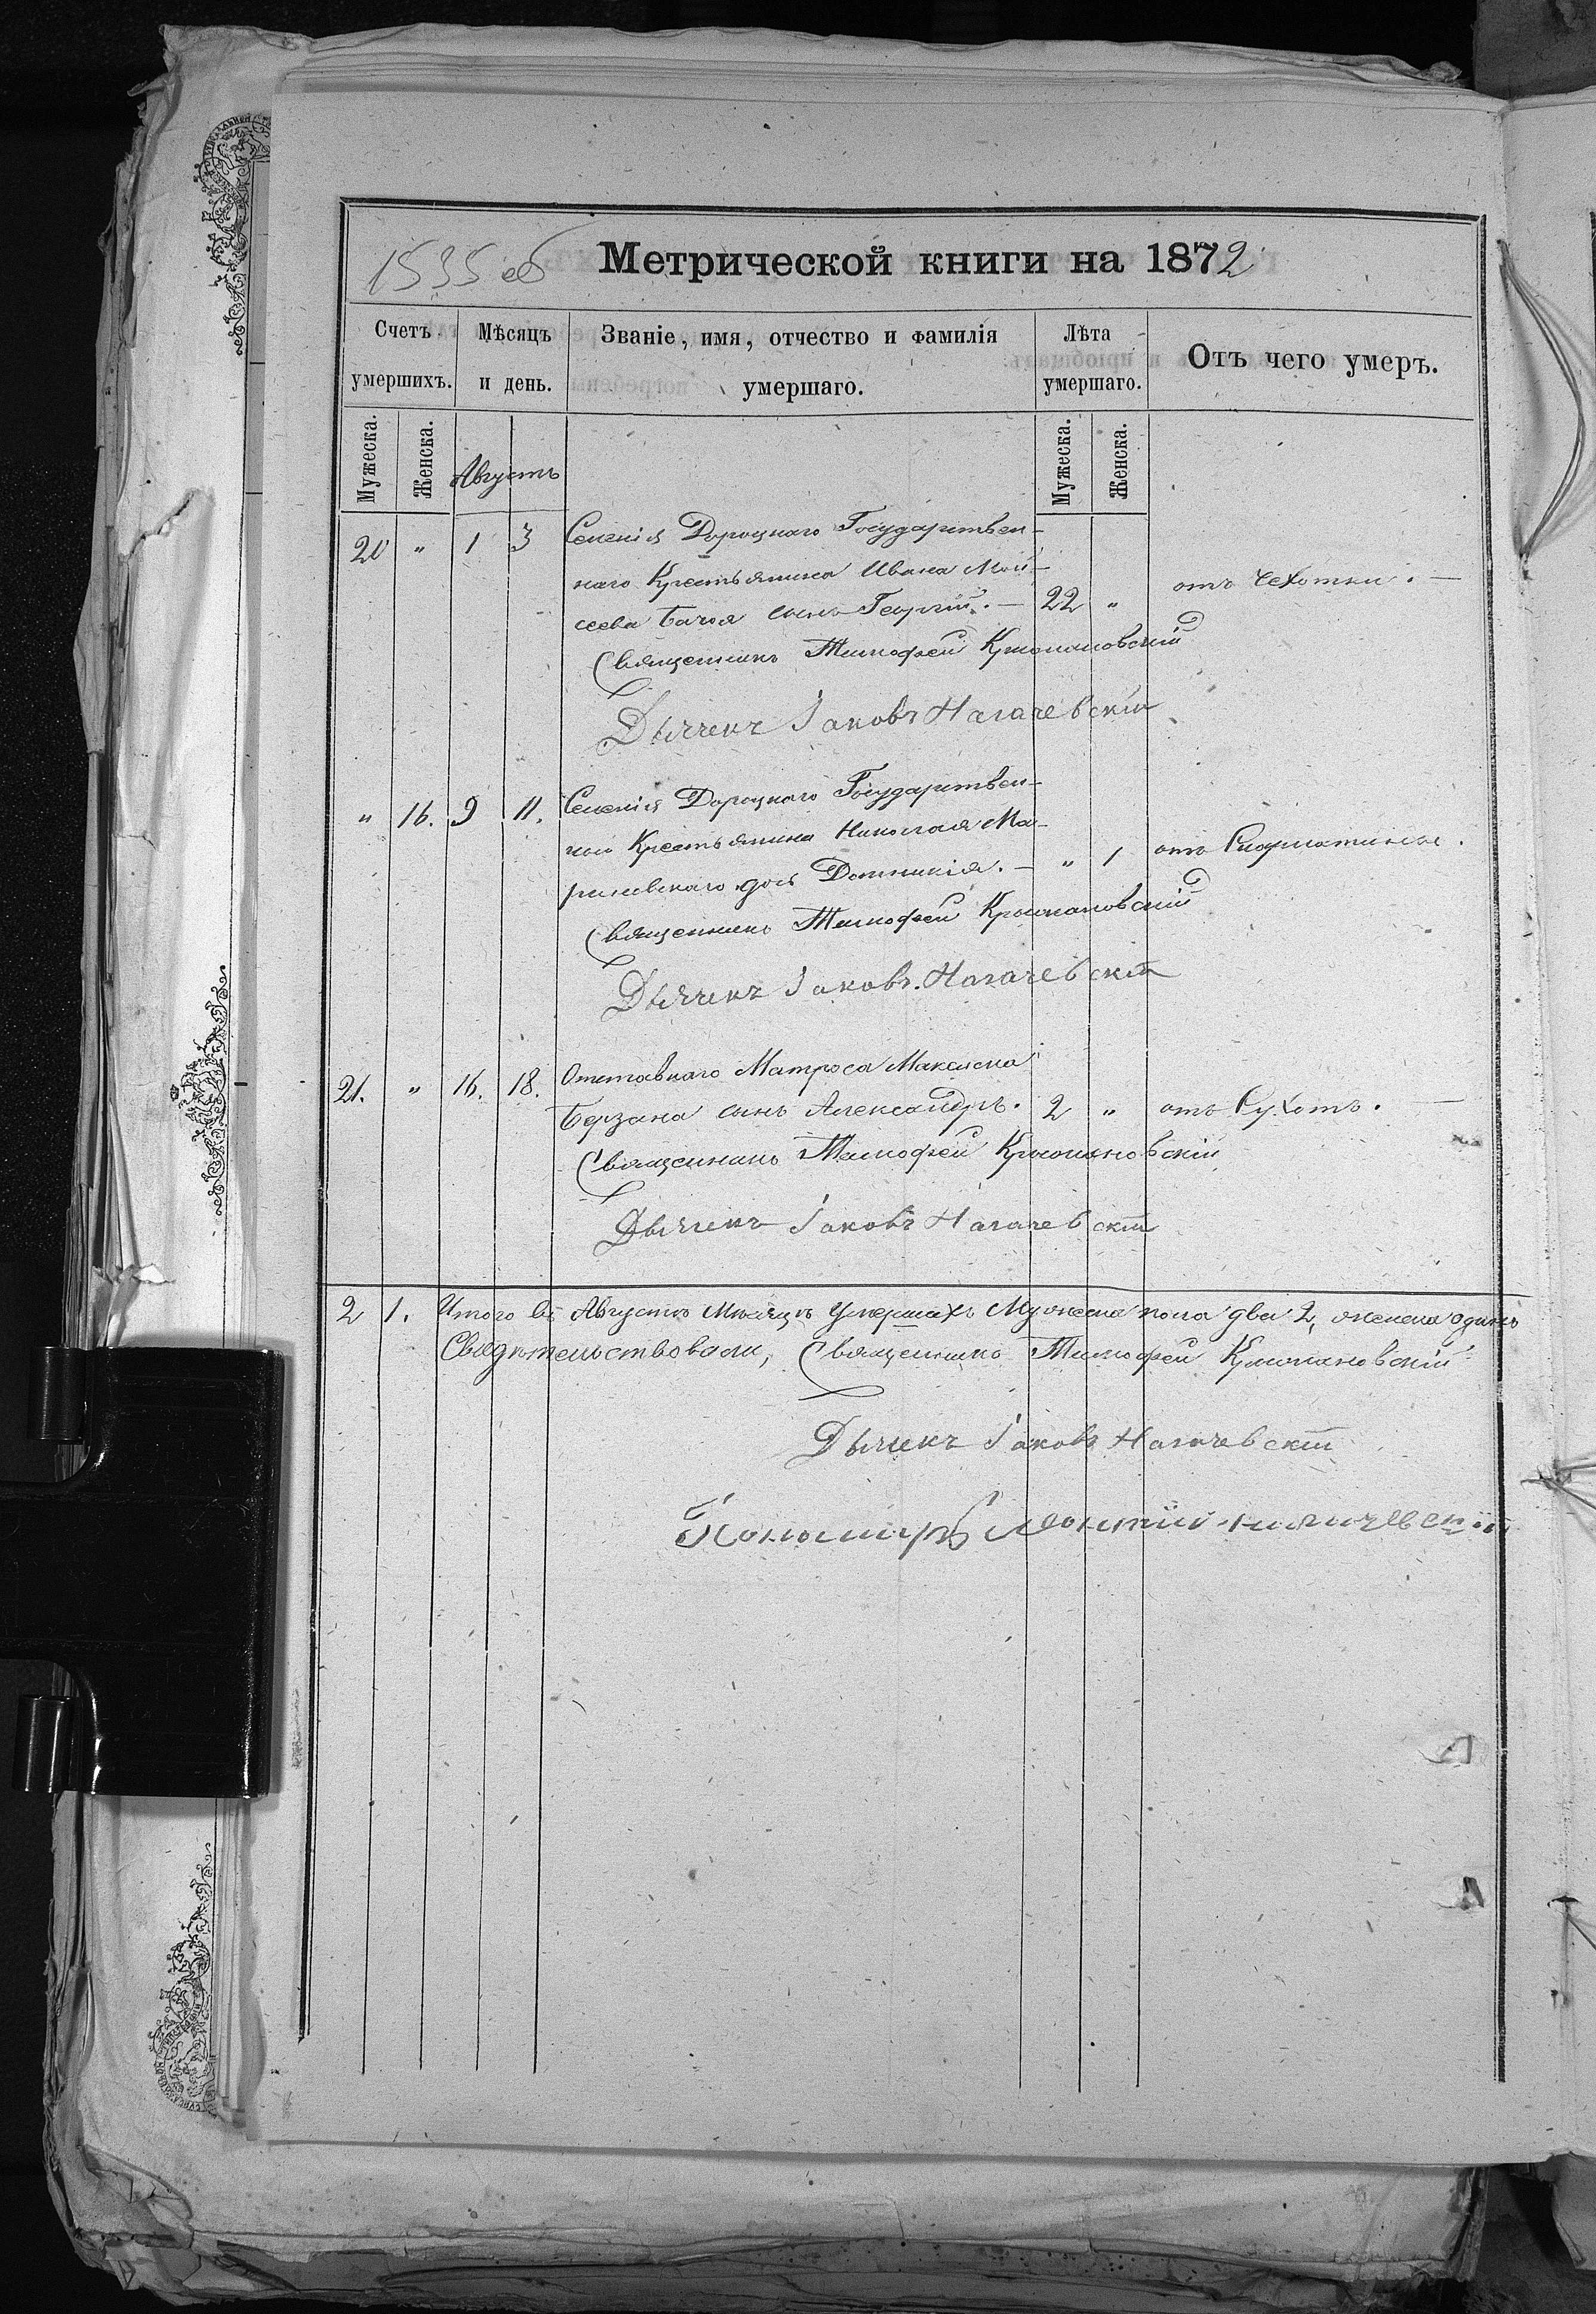 1535 об
Метрической книги на 1872
Счетъ умершихъ.
Мѣсяцъ и день.
Званіе, имя, отчество и фамилія умершаго.
Лѣта умершаго.
Отъ чего умеръ.
Мужеска.
Женска.
Августъ
Мужеска.
Женска.
20 " 1 3 Селенія Дороцкаго Государствен-
наго Крестьянина Ивана Мои-
сеева сынъ Георгій. — 22 " отъ Чехотки. —
Священникъ Тимофей
Дьячекъ Іаковъ Нагачевскій
" 16. 9 11. Селенія Дороцкаго Государствен-
наго Крестьянина Николая Ма-
риневскаго дочь Домникія. — " 1 отъ
Священникъ Тимофей
Дьячекъ Іаковъ Нагачевскій
21. " 16. 18. Отставнаго Матроса Максима
Берзана сынъ Александръ. 2 " отъ Сухотъ. —
Священникъ Тимофей
Дьячекъ Іаковъ Нагачевскій
2 1. Итого въ Августѣ Мѣсяцѣ умершихъ Мужеска пола два 2, женска одинъ
Свидѣтельствовали, Священникъ Тимофей
Дьячекъ Іаковъ Нагачевскій
Пономарь Нагачевскій